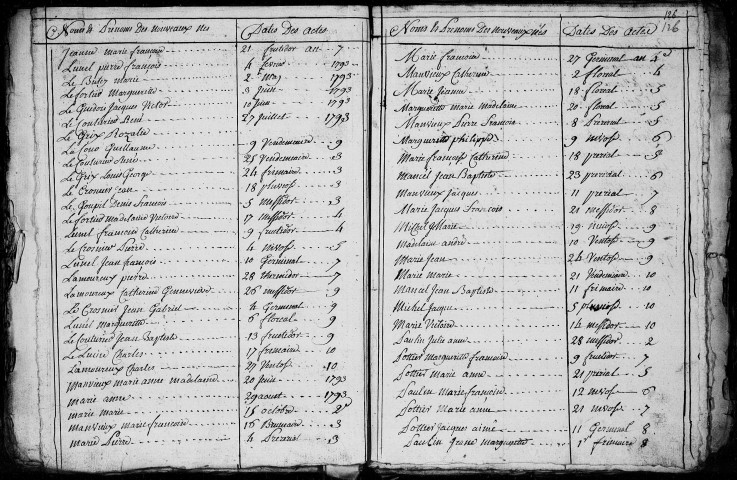 Noms & Prenoms des nouveaux nés Dates Des actes
Jeanne marie francoise 21 fructidor an 7
Lunel pierre françois 4 fevrier 1793
Le Butey Marie 2 May 1793
Le fortier Marguerite 3 Juin 1793
Le Guidou Jacques Victor 10 Juin 1793
Le Couturier René 27 Juillet 1793
Le Prix Rozalie
Le Guillaume 9 Vendemiaire 9
Le Couturier 25 Vendemiaire 3
Le Prix Louis George 24 frimaire 3
Le Crosnier Jean 18 pluviose 3
Le Goupil Denis francois 5 messidor 3
Le fortier Madelaine Victoire 17 messidor 4
Lunel francoise Catherine 9 fructidor 4
Le Crosnier Pierre 4 Nivose 5
Lunel Jean francois 10 Germinal 7
Lamoureux pierre 28 thermidor 7
Lamoureux Catherine Genneviève 26 messidor 9
Le Crosnier Jean Gabriel 4 Germinal 9
Lunel Marguerite 6 floreal 9
Le Couturier Jean Baptiste 13 fructidor 9
Le Charles 17 frimaire 10
Lamoureux Charles 27 Ventose 10
Manvieux marie anne madelaine 20 Juin 1793
Marie anne 29 aoust 1793
marie marie 15 octobre 2
Manvieux marie francoise 16 Brumaire 3
marie Pierre 4 Prerial 3
126
Noms & Prenoms Des nouveaux nés Dates Des actes 126
Marie francoise 27 Germinal an 4
Manvieux Catherine 2 floreal 4
Marie Jeanne 18 floreal 3
Marguerite marie madelaine 20 floreal 5
Manvieux Pierre francois 8 Prerial 5
Marguerite philippe 9 nivose 6
Marie francoise Catherine 18 prerial 5
Mancel Jean Baptiste 23 prerial 6
Manvieux Jacques 11 prerial 7
Marie Jacques francois 21 messidor 8
Michel Marie 19 nivose 9
Madelaine andré 10 Ventose 9
Marie Jean 24 Ventose 9
Marie Marie 21 Vendemiaire 10
Mancel Jean Baptiste 11 frimaire 10
Michel Jacques 5 pluviose 10
Marie Victoire 14 messidor 10
Paulin Julie anne 28 messidor 2
Pottier Marguerite francoise 9 fructidor 7
Pottier Marie anne 21 prerial 5
Paulin Marie francoise 12 nivose 6
Pottier Marie anne 21 nivose 7
Pottier Jacques aimé 11 Germinal 8
Paulin Jeanne marguerite 1er frimaire 8